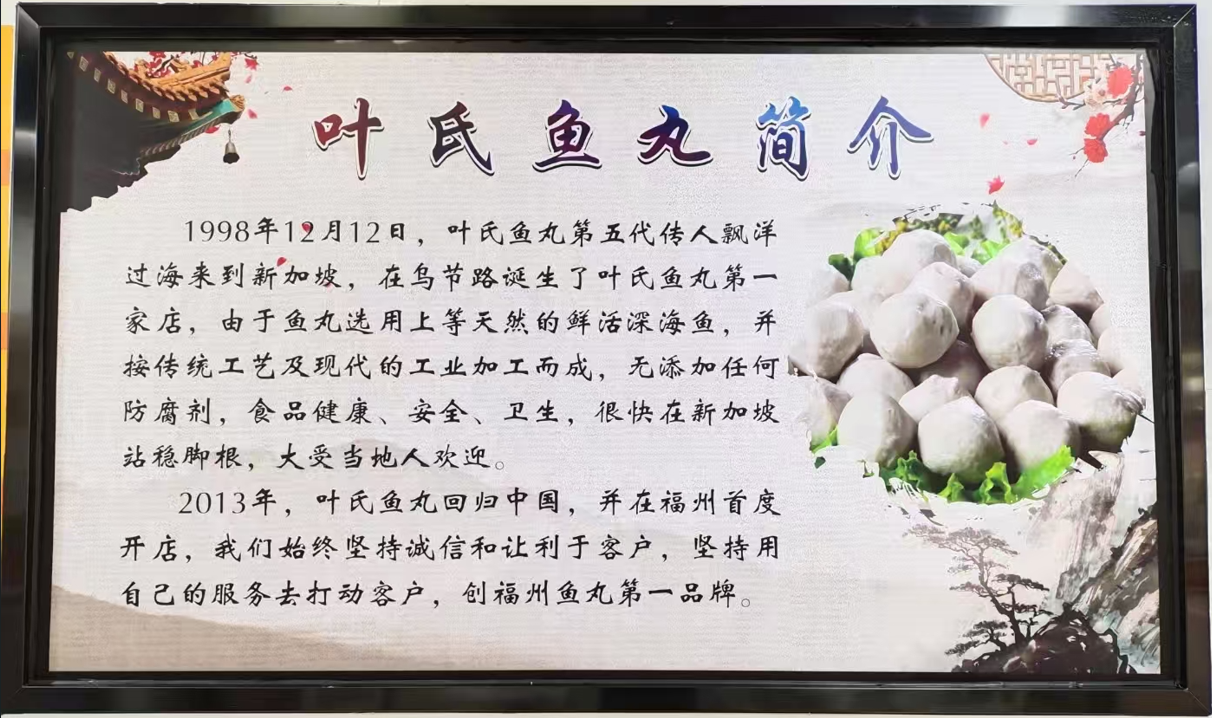 叶氏鱼丸简介
1998年12月12日，叶氏鱼丸第五代传人飘洋
过海来到新加坡，在乌节路诞生了叶氏鱼丸第一
家店，由于鱼丸选用上等天然的鲜活深海鱼，并
按传统工艺及现代的工业加工而成，无添加任何
防腐剂，食品健康、安全、卫生，很快在新加坡
站稳脚根，大受当地人欢迎。
2013年，叶氏鱼丸回归中国，并在福州首度
开店，我们始终坚持诚信和让利于客户，坚持用
自己的服务去打动客户，创福州鱼丸第一品牌。